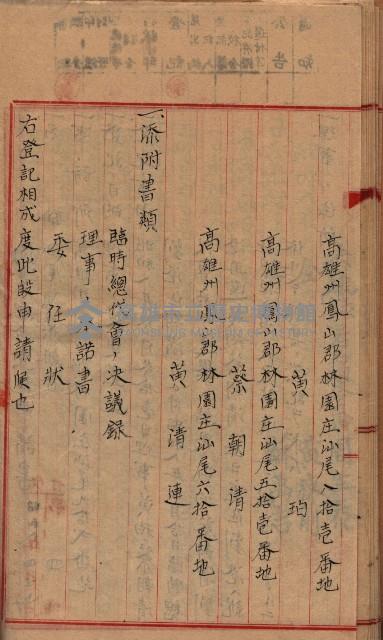 高雄州鳳山郡林園庄汕尾八拾壱番地
黄 珀
高雄州鳳山郡林園庄汕尾五拾壱番地
蔡朝清
高雄州鳳山郡林園庄汕尾六拾番地
黄清連
一、添附書類
臨時總會ノ決議録
理事ノ承諾書
委任状
右登記相成度此段申請候也
高雄市立歷史博物館